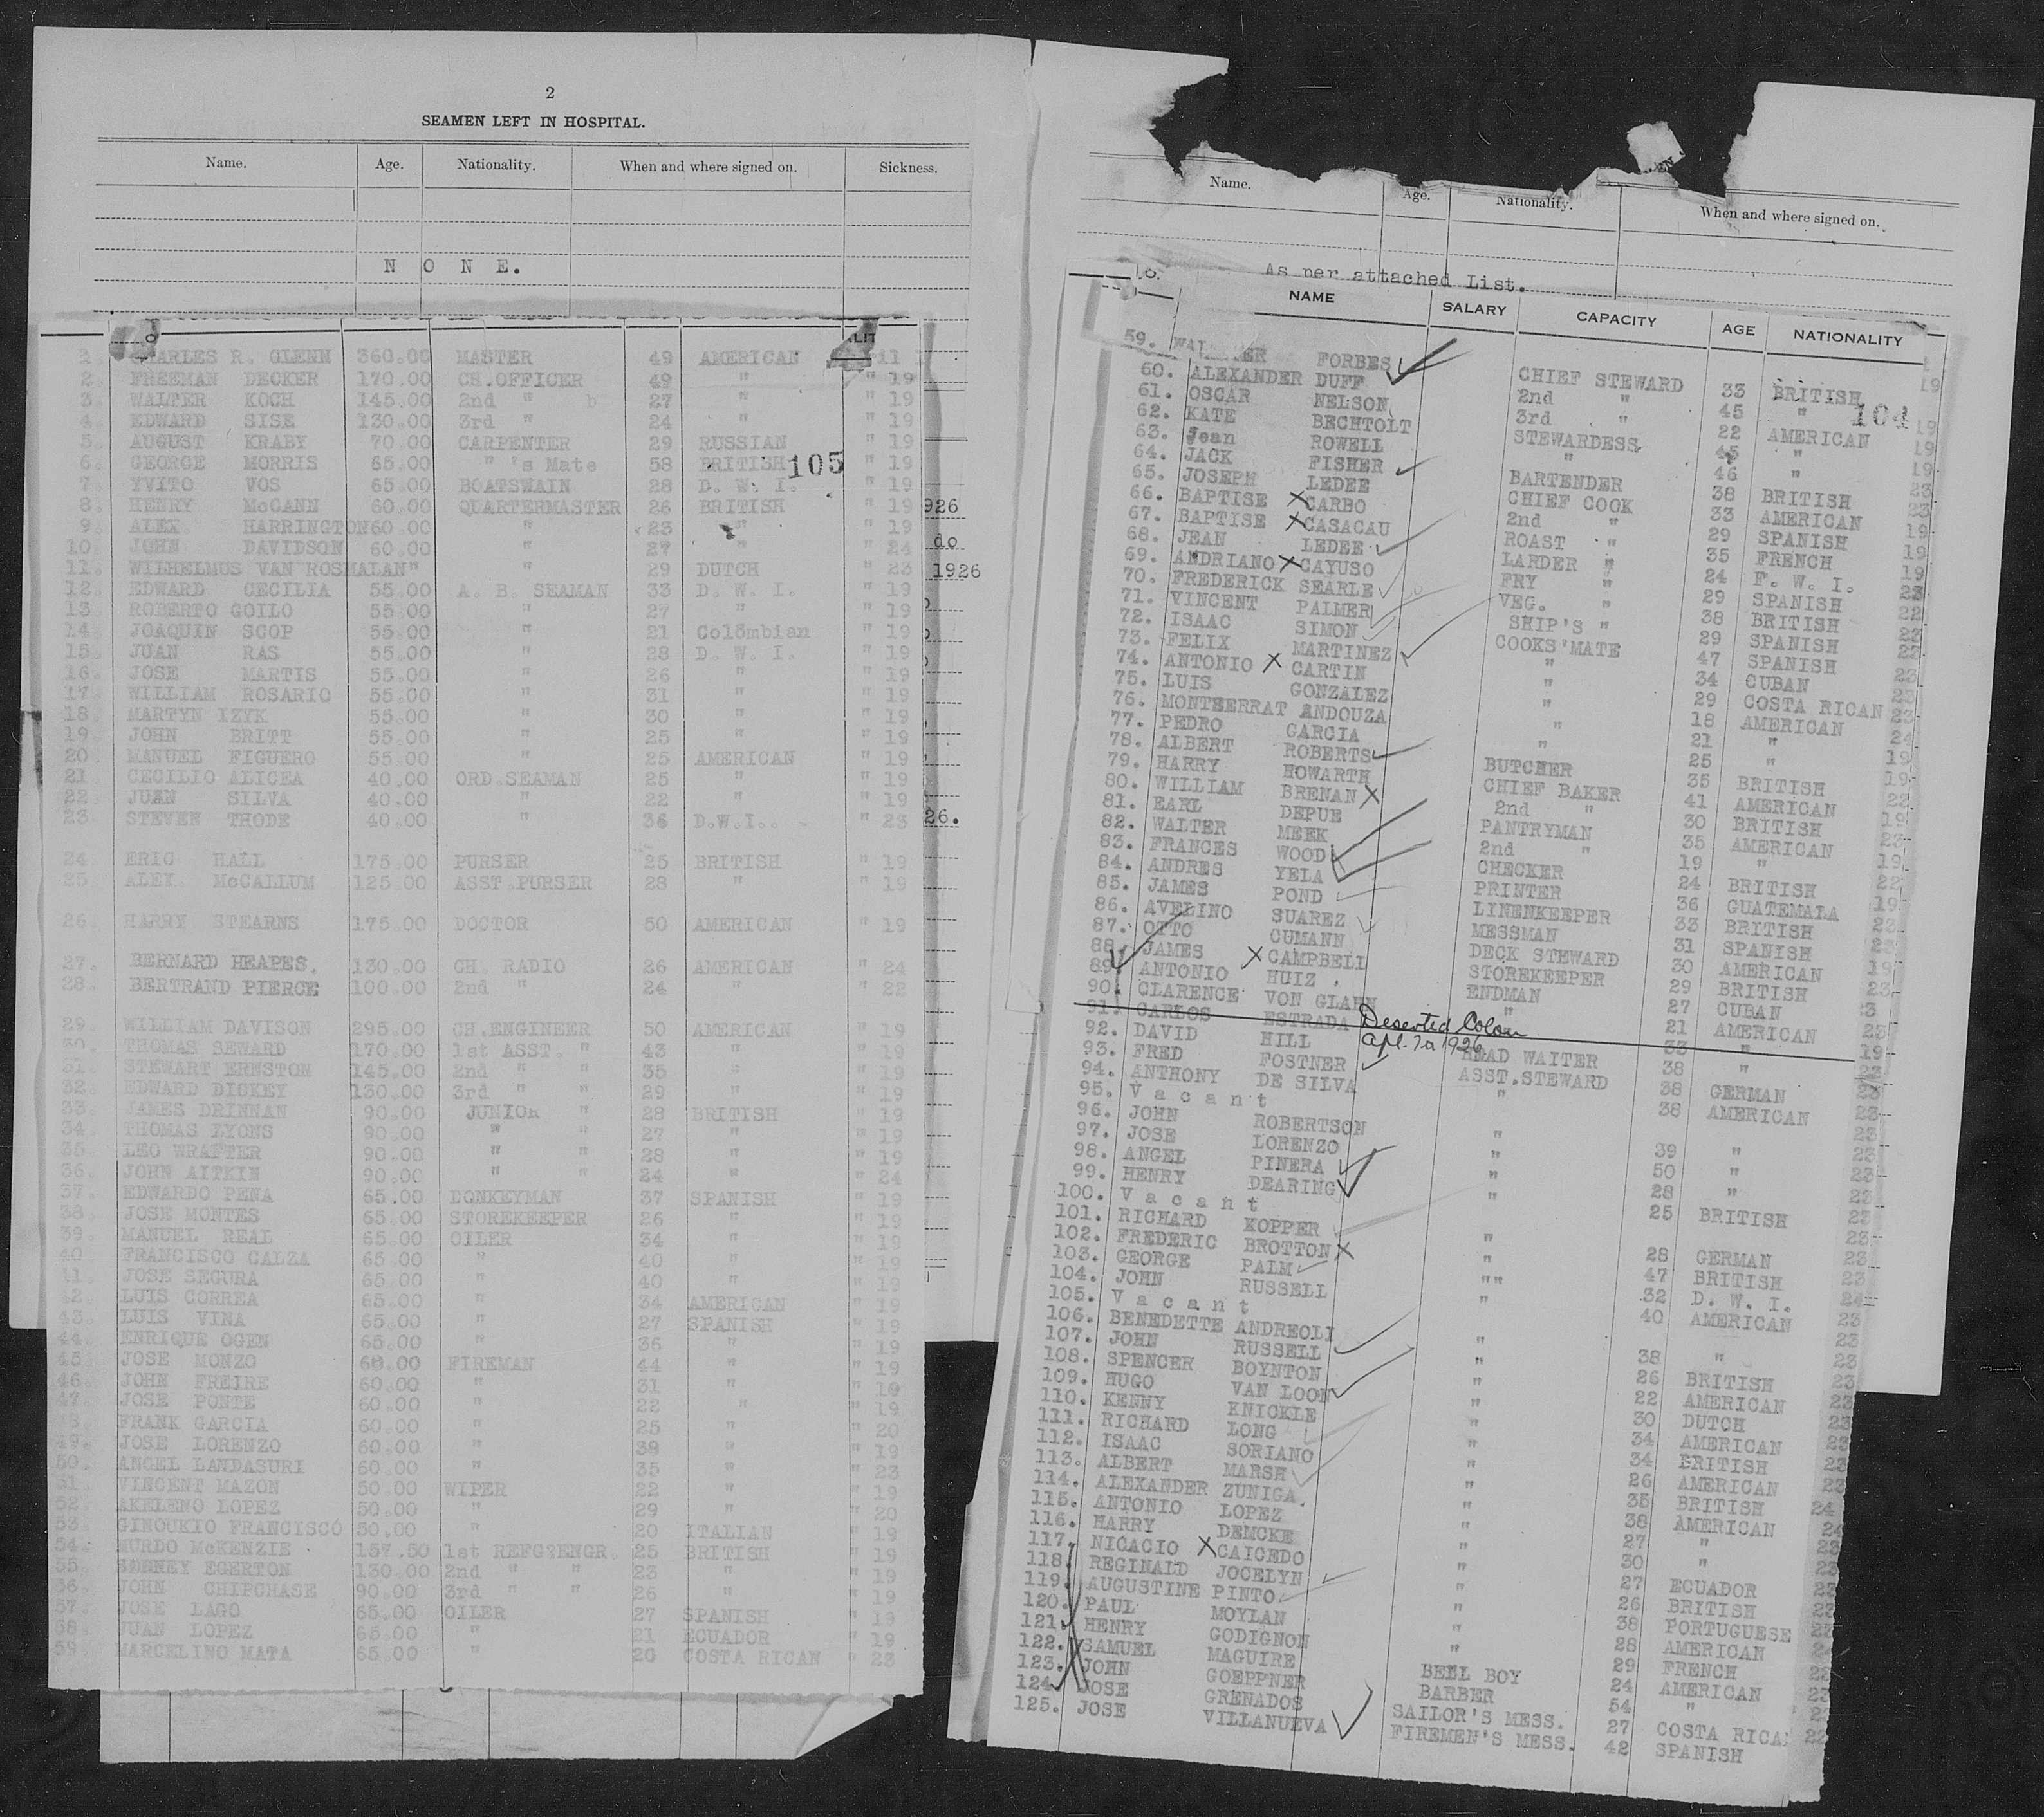 2
SEAMEN LEFT IN HOSPITAL.
Name. Age. Nationality. When and where signed on. Sickness.
N O N E.
1. CHARLES R. GLENN 360.00 MASTER 49 AMERICAN
2. FREEMAN DECKER 170.00 CH.OFFICER 49 " " 19
3. WALTER KOCH 145.00 2nd " b 27 " " 19
4. EDWARD SISE 130.00 3rd " 24 " " 19
5. AUGUST KRABY 70.00 CARPENTER 29 RUSSIAN " 19
6. GEORGE MORRIS 65.00 " 's Mate 58 BRITISH 105 " 19
7. YVITO VOS 65.00 BOATSWAIN 28 D. W. I. " 19
8. HENRY McCANN 60.00 QUARTERMASTER 26 BRITISH " 19 926
9. ALEX. HARRINGTON 60.00 " 23 " " 19
10. JOHN DAVIDSON 60.00 " 27 " " 24 do
11. WILHELMUS VAN ROSMALAN " " 29 DUTCH " 23 1926
12. EDWARD CECILIA 55.00 A. B. SEAMAN 33 D. W. I. " 19
13. ROBERTO GOILO 55.00 " 27 " " 19
14. JOAQUIN SCOP 55.00 " 21 Colombian " 19
15. JUAN RAS 55.00 " 28 D. W. I. " 19
16. JOSE MARTIS 55.00 " 26 " " 19
17. WILLIAM ROSARIO 55.00 " 31 " " 19
18. MARTYN IZYK 55.00 " 30 " " 19
19. JOHN BRITT 55.00 " 25 " " 19
20. MANUEL FIGUERO 55.00 " 25 AMERICAN " 19
21. CECILIO ALICEA 40.00 ORD.SEAMAN 25 " " 19
22. JUAN SILVA 40.00 " 22 " " 19
23. STEVEN THODE 40.00 " 36 D.W.I.. " 23 26.
24. ERIC HALL 175.00 PURSER 25 BRITISH " 19
25. ALEX. McCALLUM 125.00 ASST.PURSER 28 " " 19
26. HARRY STEARNS 175.00 DOCTOR 50 AMERICAN " 19
27. BERNARD HEAPES. 130.00 CH. RADIO 26 AMERICAN " 24
28. BERTRAND PIERCE 100.00 2nd " 24 " " 22
29. WILLIAM DAVISON 295.00 CH.ENGINEER 50 AMERICAN " 19
30. THOMAS SEWARD 170.00 1st ASST. " 43 " " 19
31. STEWART ERNSTON 145.00 2nd " " 35 " " 19
32. EDWARD DISKEY 130.00 3rd " " 29 " " 19
33. JAMES DRINNAN 90.00 JUNIOR " 28 BRITISH " 19
34. THOMAS LYONS 90.00 " " 27 " " 19
35. LEO WRAFTER 90.00 " " 28 " " 19
36. JOHN AITKIN 90.00 " " 24 " " 24
37. EDWARDO PENA 65.00 DONKEYMAN 37 SPANISH " 19
38. JOSE MONTES 65.00 STOREKEEPER 26 " " 19
39. MANUEL REAL 65.00 OILER 34 " " 19
40. FRANCISCO CALZA 65.00 " 40 " " 19
41. JOSE SEGURA 65.00 " 40 " " 19
42. LUIS CORREA 65.00 " 34 AMERICAN " 19
43. LUIS VINA 65.00 " 27 SPANISH " 19
44. ENRIQUE OGEN 65.00 " 36 " " 19
45. JOSE MONZO 60.00 FIREMAN 44 " " 19
46. JOHN FREIRE 60.00 " 31 " " 19
47. JOSE PONTE 60.00 " 22 " " 19
48. FRANK GARCIA 60.00 " 25 " " 20
49. JOSE LORENZO 60.00 " 38 " " 19
50. ANGEL LANDASURI 60.00 " 35 " " 23
51. VINCENT MAZON 50.00 WIPER 22 " " 19
52. AKELENO LOPEZ 50.00 " 29 " " 20
53. GINOUKIO FRANCISCO 50.00 " 20 ITALIAN " 19
54. MURDO McKENZIE 157.50 1st REFG?ENGR. 25 BRITISH " 19
55. SIDNEY EGERTON 130.00 2nd " " 23 " " 19
56. JOHN CHIPCHASE 90.00 3rd " " 26 " " 19
57. JOSE LAGO 65.00 OILER 27 SPANISH " 19
58. JUAN LOPEZ 65.00 " 21 ECUADOR " 19
59. MARCELINO MATA 65.00 " 20 COSTA RICAN " 23
Name. Age. Nationality. When and where signed on.
As per attached List.
NAME SALARY CAPACITY AGE NATIONALITY
59. WALTER FORBES CHIEF STEWARD 33 BRITISH 19
60. ALEXANDER DUFF 2nd " 45 " 104 19
61. OSCAR NELSON 3rd " 22 AMERICAN 19
62. KATE BECHTOLT STEWARDESS 45 " 19
63. Jean ROWELL " 46 " 23
64. JACK FISHER BARTENDER 38 BRITISH 23
65. JOSEPH LEDEE CHIEF COOK 33 AMERICAN 19
66. BAPTISE X CARBO 2nd " 29 SPANISH 19
67. BAPTISE X CASACAU ROAST " 35 FRENCH 19
68. JEAN LEDEE LARDER " 24 F. W. I. 23
69. ANDRIANO X CAYUSO FRY " 29 SPANISH 22
70. FREDERICK SEARLE VEG. " 38 BRITISH 22
71. VINCENT PALMER SHIP'S " 29 SPANISH 22
72. ISAAC SIMON COOKS'MATE 47 SPANISH 23
73. FELIX MARTINEZ " 34 CUBAN 22
74. ANTONIO X CARTIN " 29 COSTA RICAN 23
75. LUIS GONZALEZ " 18 AMERICAN 24
76. MONTSERRAT ANDOUZA " 21 " 19
77. PEDRO GARCIA " 25 " 19
78. ALBERT ROBERTS BUTCHER 35 BRITISH 22
79. HARRY HOWARTH CHIEF BAKER 41 AMERICAN 19
80. WILLIAM BRENAN X 2nd " 30 BRITISH 23
81. EARL DEPUE PANTRYMAN 35 AMERICAN 19
82. WALTER MEEK 2nd " 19 " 22
83. FRANCES WOOD CHECKER 24 BRITISH 19
84. ANDRES YELA PRINTER 36 GUATEMALA 23
85. JAMES POND LINENKEEPER 33 BRITISH 23
86. AVELINO SUAREZ MESSMAN 31 SPANISH 19
87. OTTO CUMANN DECK STEWARD 30 AMERICAN 23
88. JAMES X CAMPBELL STOREKEEPER 29 BRITISH 23
89. ANTONIO HUIZ . ENDMAN 27 CUBAN 23
90. CLARENCE VON GLAHN " 21 AMERICAN 19
91. CARLOS ESTRADA Deserted Colon 33 "
Apl. 7th 1926
92. DAVID HILL HEAD WAITER 38 " 23
93. FRED FOSTNER ASST.STEWARD 38 GERMAN 23
94. ANTHONY DE SILVA " 38 AMERICAN 23
95. V a c a n t
96. JOHN ROBERTSON " 39 " 23
97. JOSE LORENZO " 50 " 23
98. ANGEL PINERA " 28 " 23
99. HENRY DEARING " 25 BRITISH 23
100. V a c a n t
101. RICHARD KOPPER " 28 GERMAN 23
102. FREDERIC BROTTON X " 47 BRITISH 23
103. GEORGE PALM "" 32 D. W. I. 24
104. JOHN RUSSELL " 40 AMERICAN 23
105. V a c a n t
106. BENEDETTE ANDREOLI " 38 " 23
107. JOHN RUSSELL " 26 BRITISH 23
108. SPENCER BOYNTON " 22 AMERICAN 23
109. HUGO VAN LOON " 30 DUTCH 23
110. KENNY KNICKLE " 34 AMERICAN 23
111. RICHARD LONG " 34 BRITISH 23
112. ISAAC SORIANO " 26 AMERICAN 23
113. ALBERT MARSH " 35 BRITISH 24
114. ALEXANDER ZUNIGA. " 38 AMERICAN 24
115. ANTONIO LOPEZ " 27 " 23
116. HARRY DEMCKE " 30 " 23
117. NICACIO X CAICEDO " 27 ECUADOR 23
118. REGINALD JOCELYN " 26 BRITISH 23
119. AUGUSTINE PINTO " 38 PORTUGUESE 23
120. PAUL MOYLAN " 28 AMERICAN 24
121. HENRY GODIGNON " 29 FRENCH 23
122. SAMUEL MAGUIRE BELL BOY 24 AMERICAN 23
123. JOHN GOEPPNER BARBER 54 "
124. JOSE GRENADOS SAILOR'S MESS. 27 COSTA RICA 22
125. JOSE VILLANUEVA FIREMEN'S MESS. 42 SPANISH